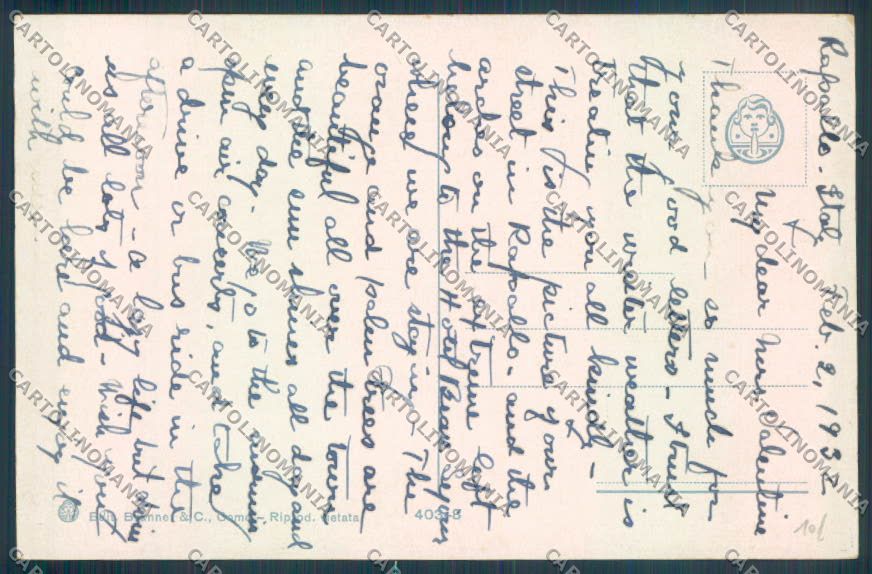 Rapallo - Italy Feb. 2, 1932
My dear Mrs. Valentine
Thank you - so much for
your good letters - I trust
that the winter weather is
treating you all kindly -
This is the picture of our
street in Rapallo - and the
arches on the extreme left
belong to the Hotel Beau Sejour
where we are staying. The
orange and palm trees are
beautiful all over the town
and the sun shines all day and
every day. We go to the morning
open air concerts, and take
a drive or bus ride in the
afternoon - a lazy life but doing
us all lots of good - Wish you
could be here and enjoy it
with
Ediz. Brunner & C., Como - Riprod. vietata
403-8
10f
CARTOLINOMANIA